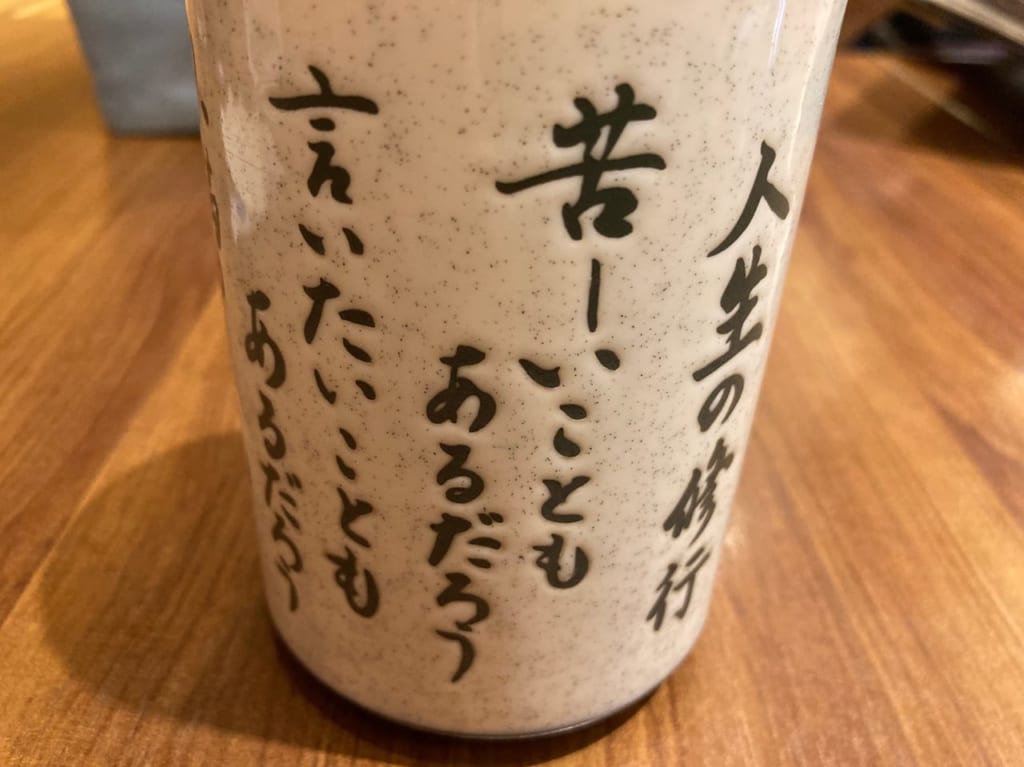 人生の修行
苦しいことも
あるだろう
言いたいことも
あるだろう